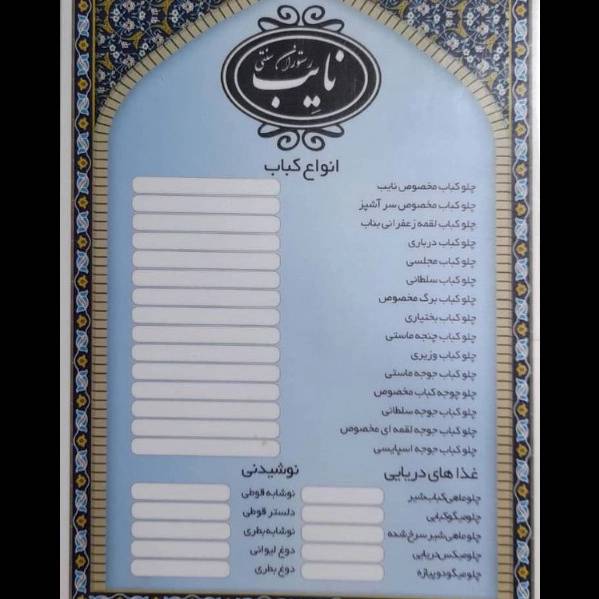 رستوران سنتی
نایب
انواع کباب
چلو کباب مخصوص نایب
چلو کباب مخصوص سر آشپز
چلو کباب لقمه زعفرانی بناب
چلو کباب درباری
چلو کباب مجلسی
چلو کباب سلطانی
چلو کباب برگ مخصوص
چلو کباب بختیاری
چلو کباب چنجه ماستی
چلو کباب وزیری
چلو کباب جوجه ماستی
چلو جوجه کباب مخصوص
چلو کباب جوجه سلطانی
چلو کباب جوجه لقمه ای مخصوص
چلو کباب جوجه اسپایسی
غذا های دریایی
چلو ماهی کباب شیر
چلو میگو کبابی
چلو ماهی شیر سرخ شده
چلو میکس دریایی
چلو میگو دو پیازه
نوشیدنی
نوشابه قوطی
دلستر قوطی
نوشابه بطری
دوغ لیوانی
دوغ بطری